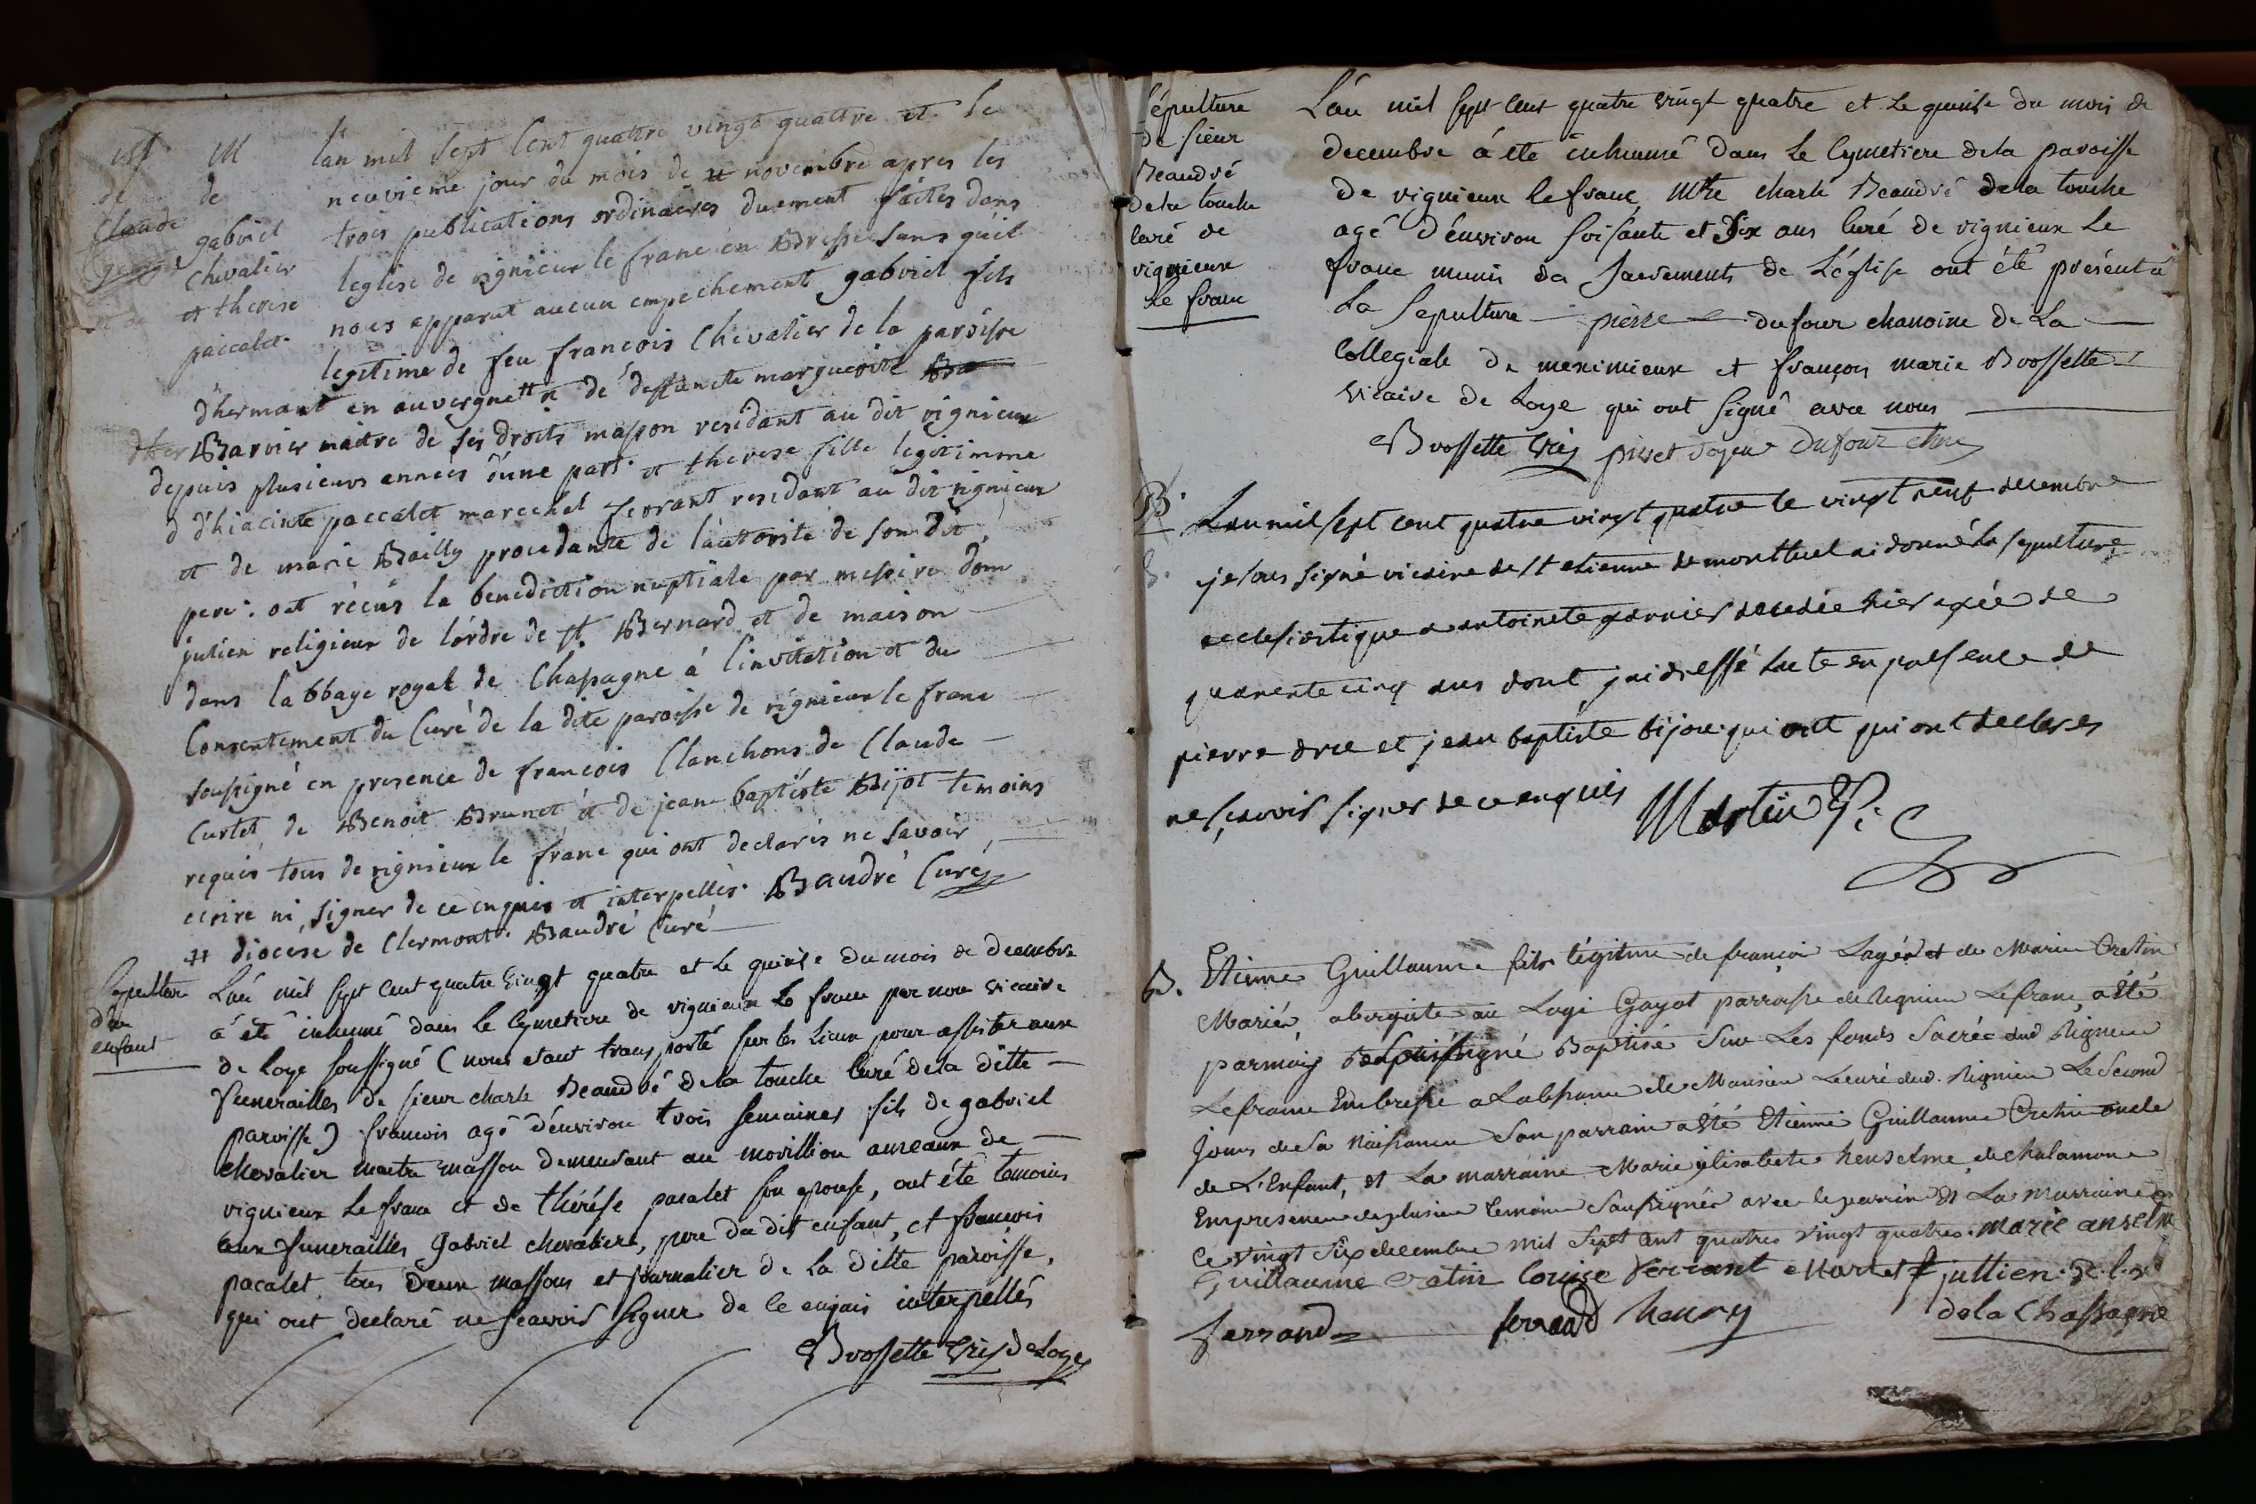 M
de
gabriel
Chivalier
et therese
paccalet.
de
Claude
lan mil sept Cent quattre vingt quattre et le
neuvieme jour du mois de novembre apres les
trois publications ordinaires duement faites dans
leglise de rignieux le franc en Bresse sans quil
nous apparut aucun empechement gabriel fils
legitime de feu francois Chivalier de la paroisse
d'hermant en auvergne # et de deffuncte marguerite
Barnier maitre de ses droits masson residant au dit rignieux
depuis plusieurs années d'une part. et therese fille legitimme
d'hiacinte paccalet marechal ferrant residant au dit rignieux
et de marie Bailly procedante de l'autorité de son dit
pere. ont récus la benediction nuptiale par messire dom
julien religieux de l'ordre de st Bernard et de maison
dans labbaye royale de Chassagne à linvitation et du
Consentement du Curé de la dite paroisse de rignieux le franc
soussigné en presence de francois Clanchons de Claude
Curtet de Benoit Brunet et de jean baptiste Bijot temoins
requis tous de rignieux le franc qui ont declarés ne savoir
ecrire ni signer de ce enquis et interpellés. Baudré Curé
# diocése de Clermont. Baudré Curé
Sepulture
d'un
enfant
L'an mil sept cent quatre vingt quatre et le quinse du mois de decembre
a été inhumé dans le cymetiere de rignieux le franc par nous vicaire
de Loye soussigné (nous etant transporté sur les lieux pour assister aux
funerailles de sieur charle Beaudré de la touche curé de la ditte
paroisse) francois agé d'environ trois semaines fils de gabriel
chevalier maitre masson demeurant au movillion ameaux de
rignieux le franc et de thérése pacalet son epouse, ont été temoins
aux funerailles gabriel chevaliere, pere du dit enfant, et francois
pacalet tous deux massons et journalier de la ditte paroisse,
qui ont declaré ne scavoir signer de ce enquis interpellés
Brossette Vic de Loye
Sépulture
de sieur
Beaudré
de la touche
curé de
rignieux
le franc
L'an mil sept cent quatre vingt quatre et le quinse du mois de
decembre a été inhumé dans le cymetiere de la paroisse
de rignieux le franc Mtre charle Beaudré de la touche
agé d'environ soisante et dix ans curé de rignieux le
franc munis des sacrements de L'église ont été présent à
la sepulture pierre dufour chanoine de La
Collegiale de meximieux et françois marie Brossette
vicaire de Loye qui ont signé avec nous
Brossette Vic Dufour
B.
Lan mil sept cent quatre vingt quatre le vingt neuf decembre
je sous signé vicaire de st etienne de montluel ai donné la sepulture
ecclesiastique a antoinete garnier decedée hier agée de
quarente cinq ans dont j'ai dressé lacte en presence de
pierre dree et jean baptiste bijou qui ont qui ont declarés
ne sçavoir signer de ce enquis Martin
B.
Etienne Guillaume fils légitime de francois Lager et de Marie Cretin
Mariés, abergiste au Logi Gayot parroisse de Rignieu Lefranc, a été
parmoy Soussigné Baptisé Sur Les fonds Sacrée dud Rignieu
Lefranc En bresse a Labsence de Monsieu Lecuré dud. Rignieu Le Second
jours de Sa Naissance Son parrain a été Etienne Guillaume Cretin oncle
de L'Enfant, et La marraine Marie elisabete henselme de Chalamone
En presence de plusieur temoins Sousignés avec le parrin et La marraine
Ce vingt Six decembre mil Sept Cent quatres vingt quatres. marie anselm
Guillaume cretin Louise ferrant jullien
ferrand ferrand henry de la Chassagne